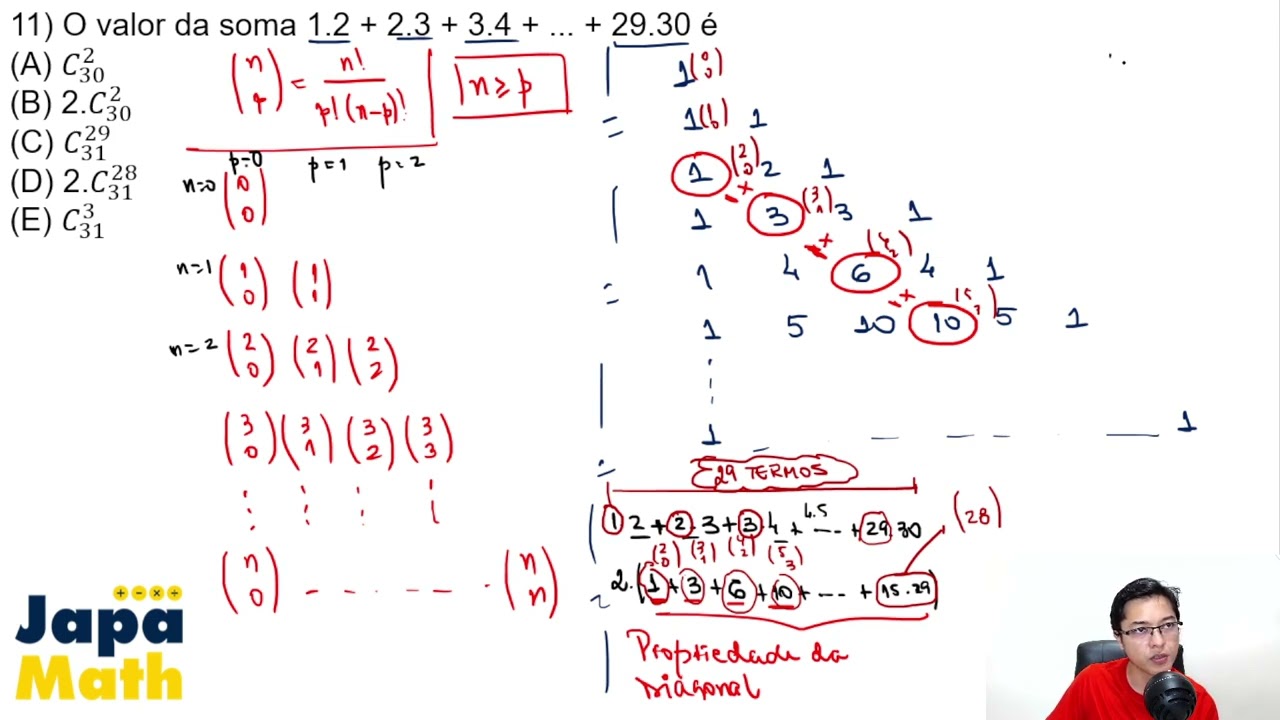 11) O valor da soma 1.2 + 2.3 + 3.4 + ... + 29.30 é
(A) C²₃₀
(B) 2.C²₃₀
(C) C²⁹₃₁
(D) 2.C²⁸₃₁
(E) C³₃₁
(n p) = n! / p!(n-p)!
n ≥ p
p=0 p=1 p=2
n=0 (0 0)
n=1 (1 0) (1 1)
n=2 (2 0) (2 1) (2 2)
(3 0) (3 1) (3 2) (3 3)
(n 0) - - - - - (n n)
1 (0 0)
1 (1 0) 1
1 (2 0) 2 1
1 3 (3 1) 3 1
1 4 6 (4 2) 4 1
1 5 10 10 5 1
1 - - - - - 1
29 TERMOS
1.2 + 2.3 + 3.4 + 4.5 ---- + 29.30
(28)
(2 0) (3 1) (4 2) (5 3)
2.(1 + 3 + 6 + 10 + ---- + 15.29)
Propriedade da
Diagonal
Japa
Math